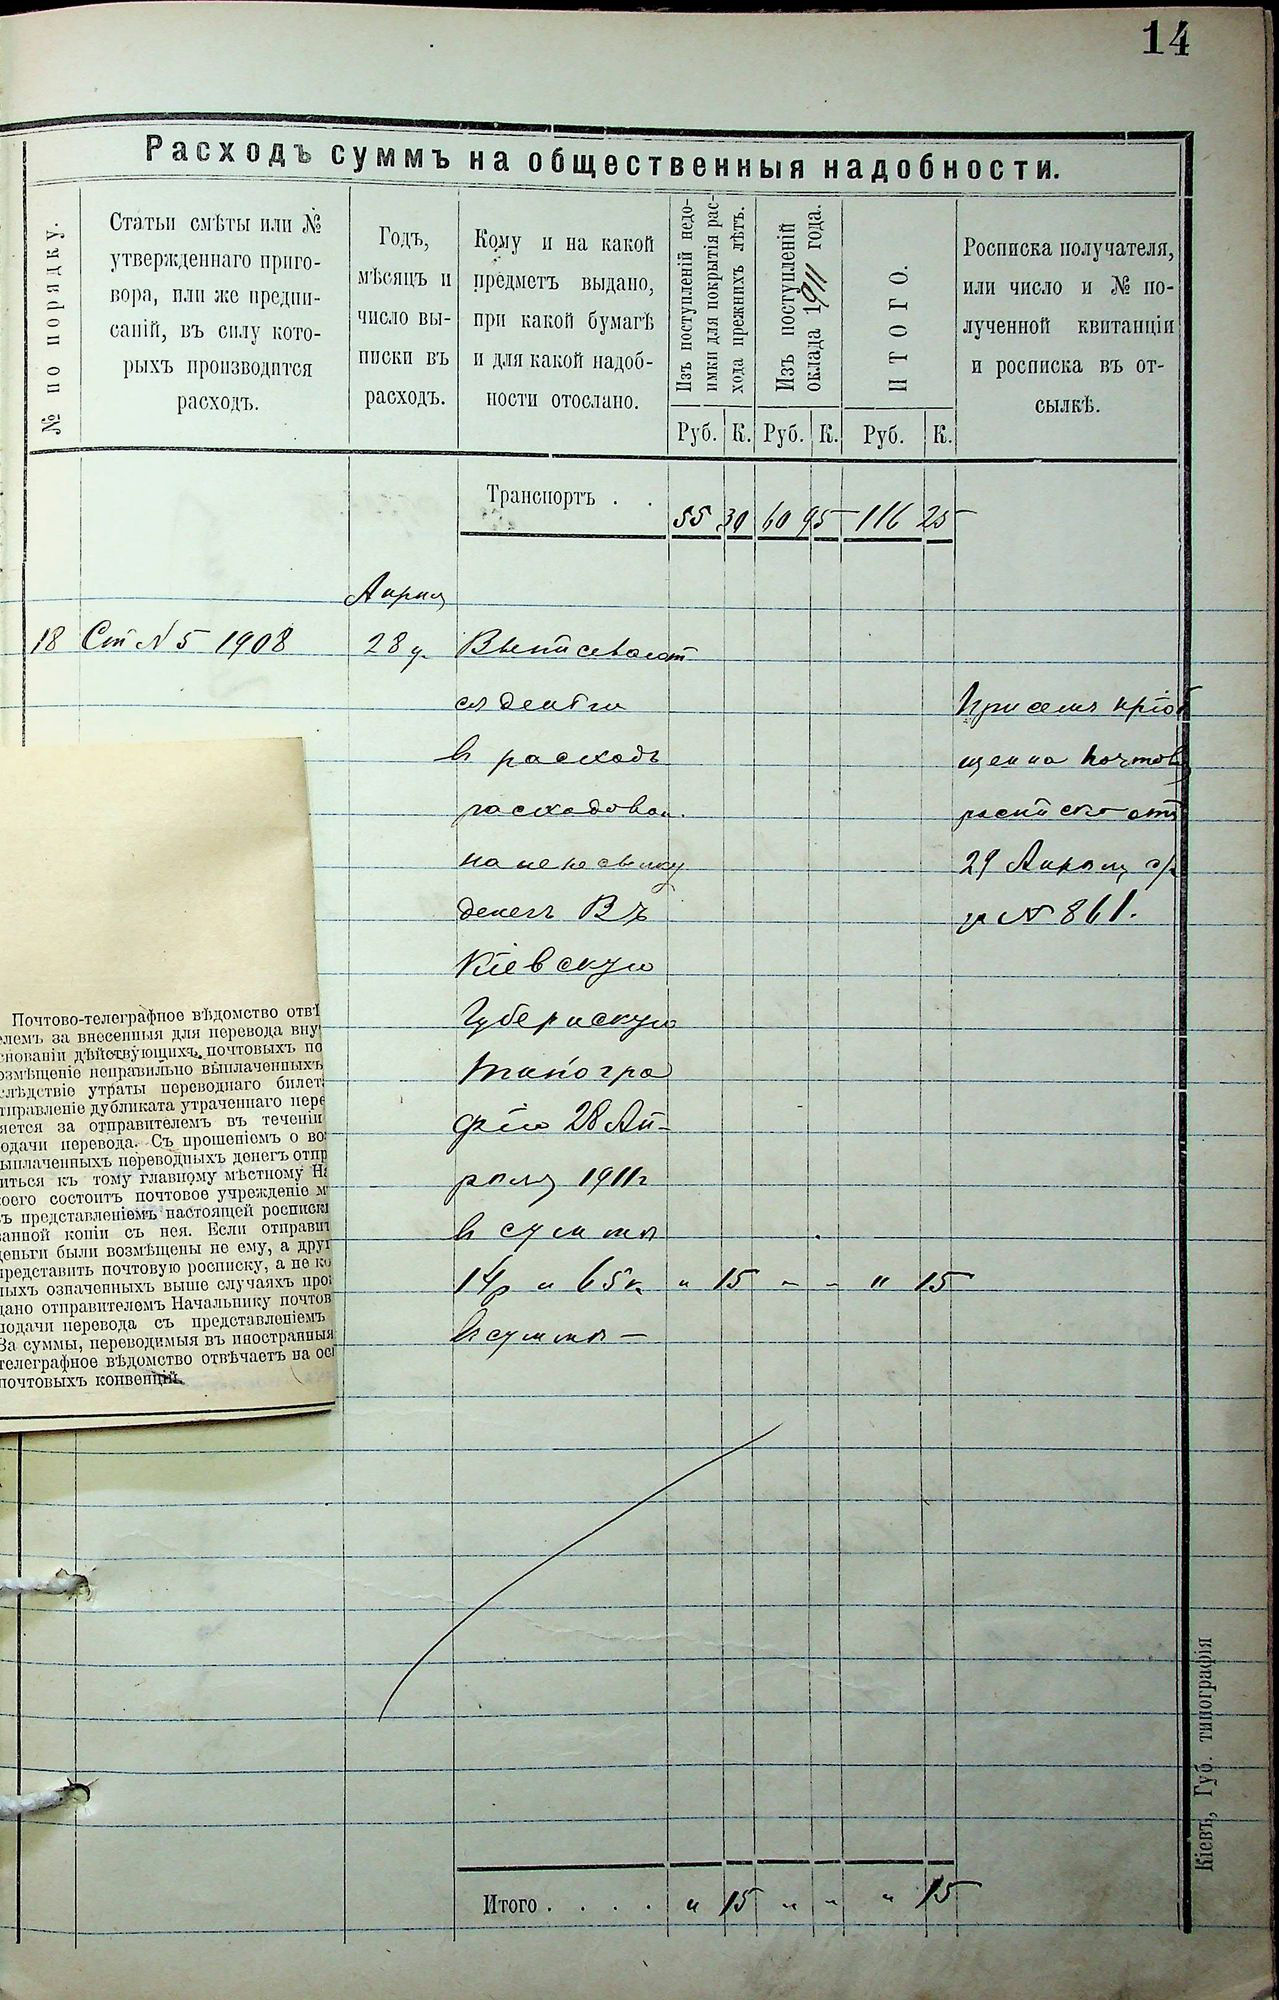 14
Расходъ суммъ на общественныя надобности.
№ по порядку.
Статьи смѣты или №
утвержденнаго приго-
вора, или же предпи-
саній, въ силу кото-
рыхъ производится
расходъ.
Годъ,
мѣсяцъ и
число вы-
писки въ
расходъ.
Кому и на какой
предметъ выдано,
при какой бумагѣ
и для какой надоб-
ности отослано.
Изъ поступленій недо-
имки для покрытія рас-
хода прежнихъ лѣтъ.
Изъ поступленій
оклада 1911 года.
ИТОГО.
Росписка получателя,
или число и № по-
лученной квитанціи
и росписка въ от-
сылкѣ.
Руб. К. Руб. К. Руб. К.
Транспортъ . . 55 30 60 95 116 25
Апрѣля
18 Ст № 5 1908 28 д.
ся деньги
в расходъ
расходован.
на пересылку
денегъ Въ
Кіевскую
Губернскую
типогра
фію 28 Ап-
рѣля 1911 г
в сумме
14 р и 65 к " 15 - - " 15
в сумме —
При семъ пріоб
щенна почтов
росписка отъ
29 Апрѣля с/г
за № 861.
Почтово-телеграфное вѣдомство отвѣ
елемъ за внесенныя для перевода вну
снованіи дѣйствующихъ почтовыхъ по
озмѣщеніе неправильно выплаченныхъ
слѣдствіе утраты переводнаго билет
тправленіе дубликата утраченнаго пере
яется за отправителемъ въ теченіи
одачи перевода. Съ прошеніемъ о во
ыплаченныхъ переводныхъ денегъ отпр
иться къ тому главному мѣстному На
оего состоитъ почтовое учрежденіе м
ъ представленіемъ настоящей росписк
анной копіи съ нея. Если отправит
еньги были возмѣщены не ему, а друг
представить почтовую росписку, а не ко
ныхъ означенныхъ выше случаяхъ про
дано отправителемъ Начальнику почтов
подачи перевода съ представленіемъ
За суммы, переводимыя въ иностранныя
телеграфное вѣдомство отвѣчаетъ на ос
почтовыхъ конвенцій.
Итого . . . . " 15 " " " 15
Кіевъ, Губ. типографія